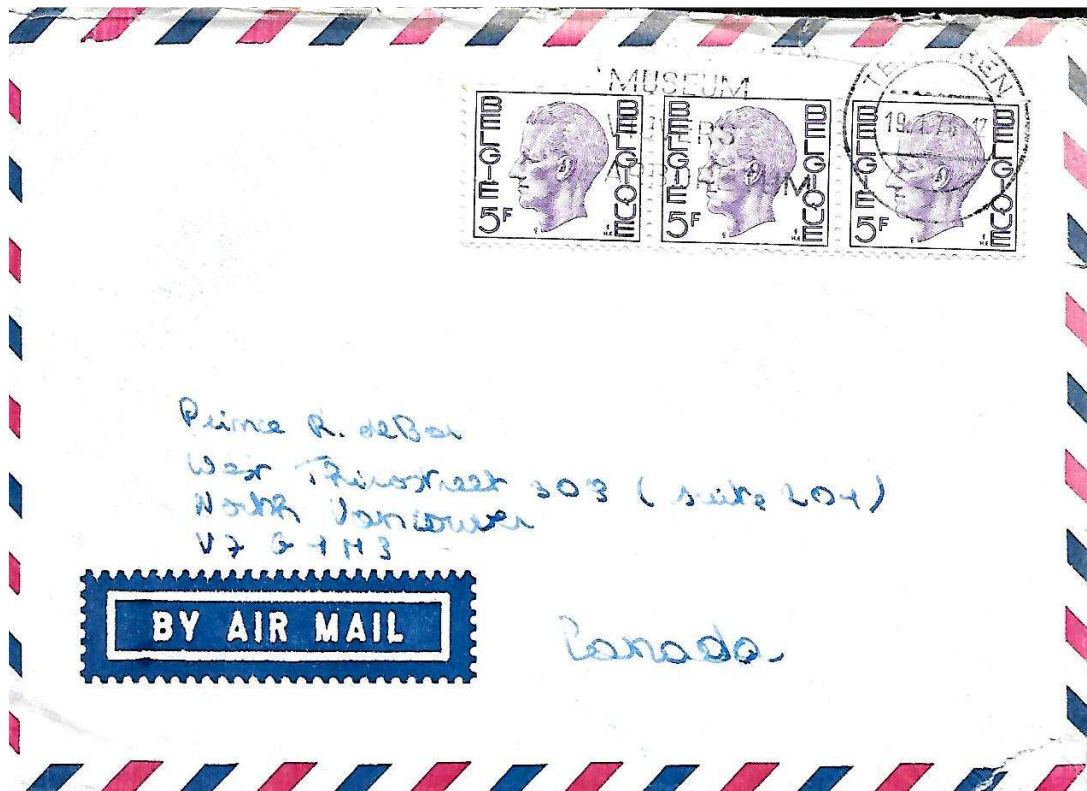 MUSEUM
VIJVERS
ARBORETUM
TERVUREN
19.1.7
BELGIE BELGIQUE 5F
BELGIE BELGIQUE 5F
BELGIE BELGIQUE 5F
Prince R. de Bar
West Thirdstreet 303 (suite 204)
North Vancouver
V7
BY AIR MAIL
Canada